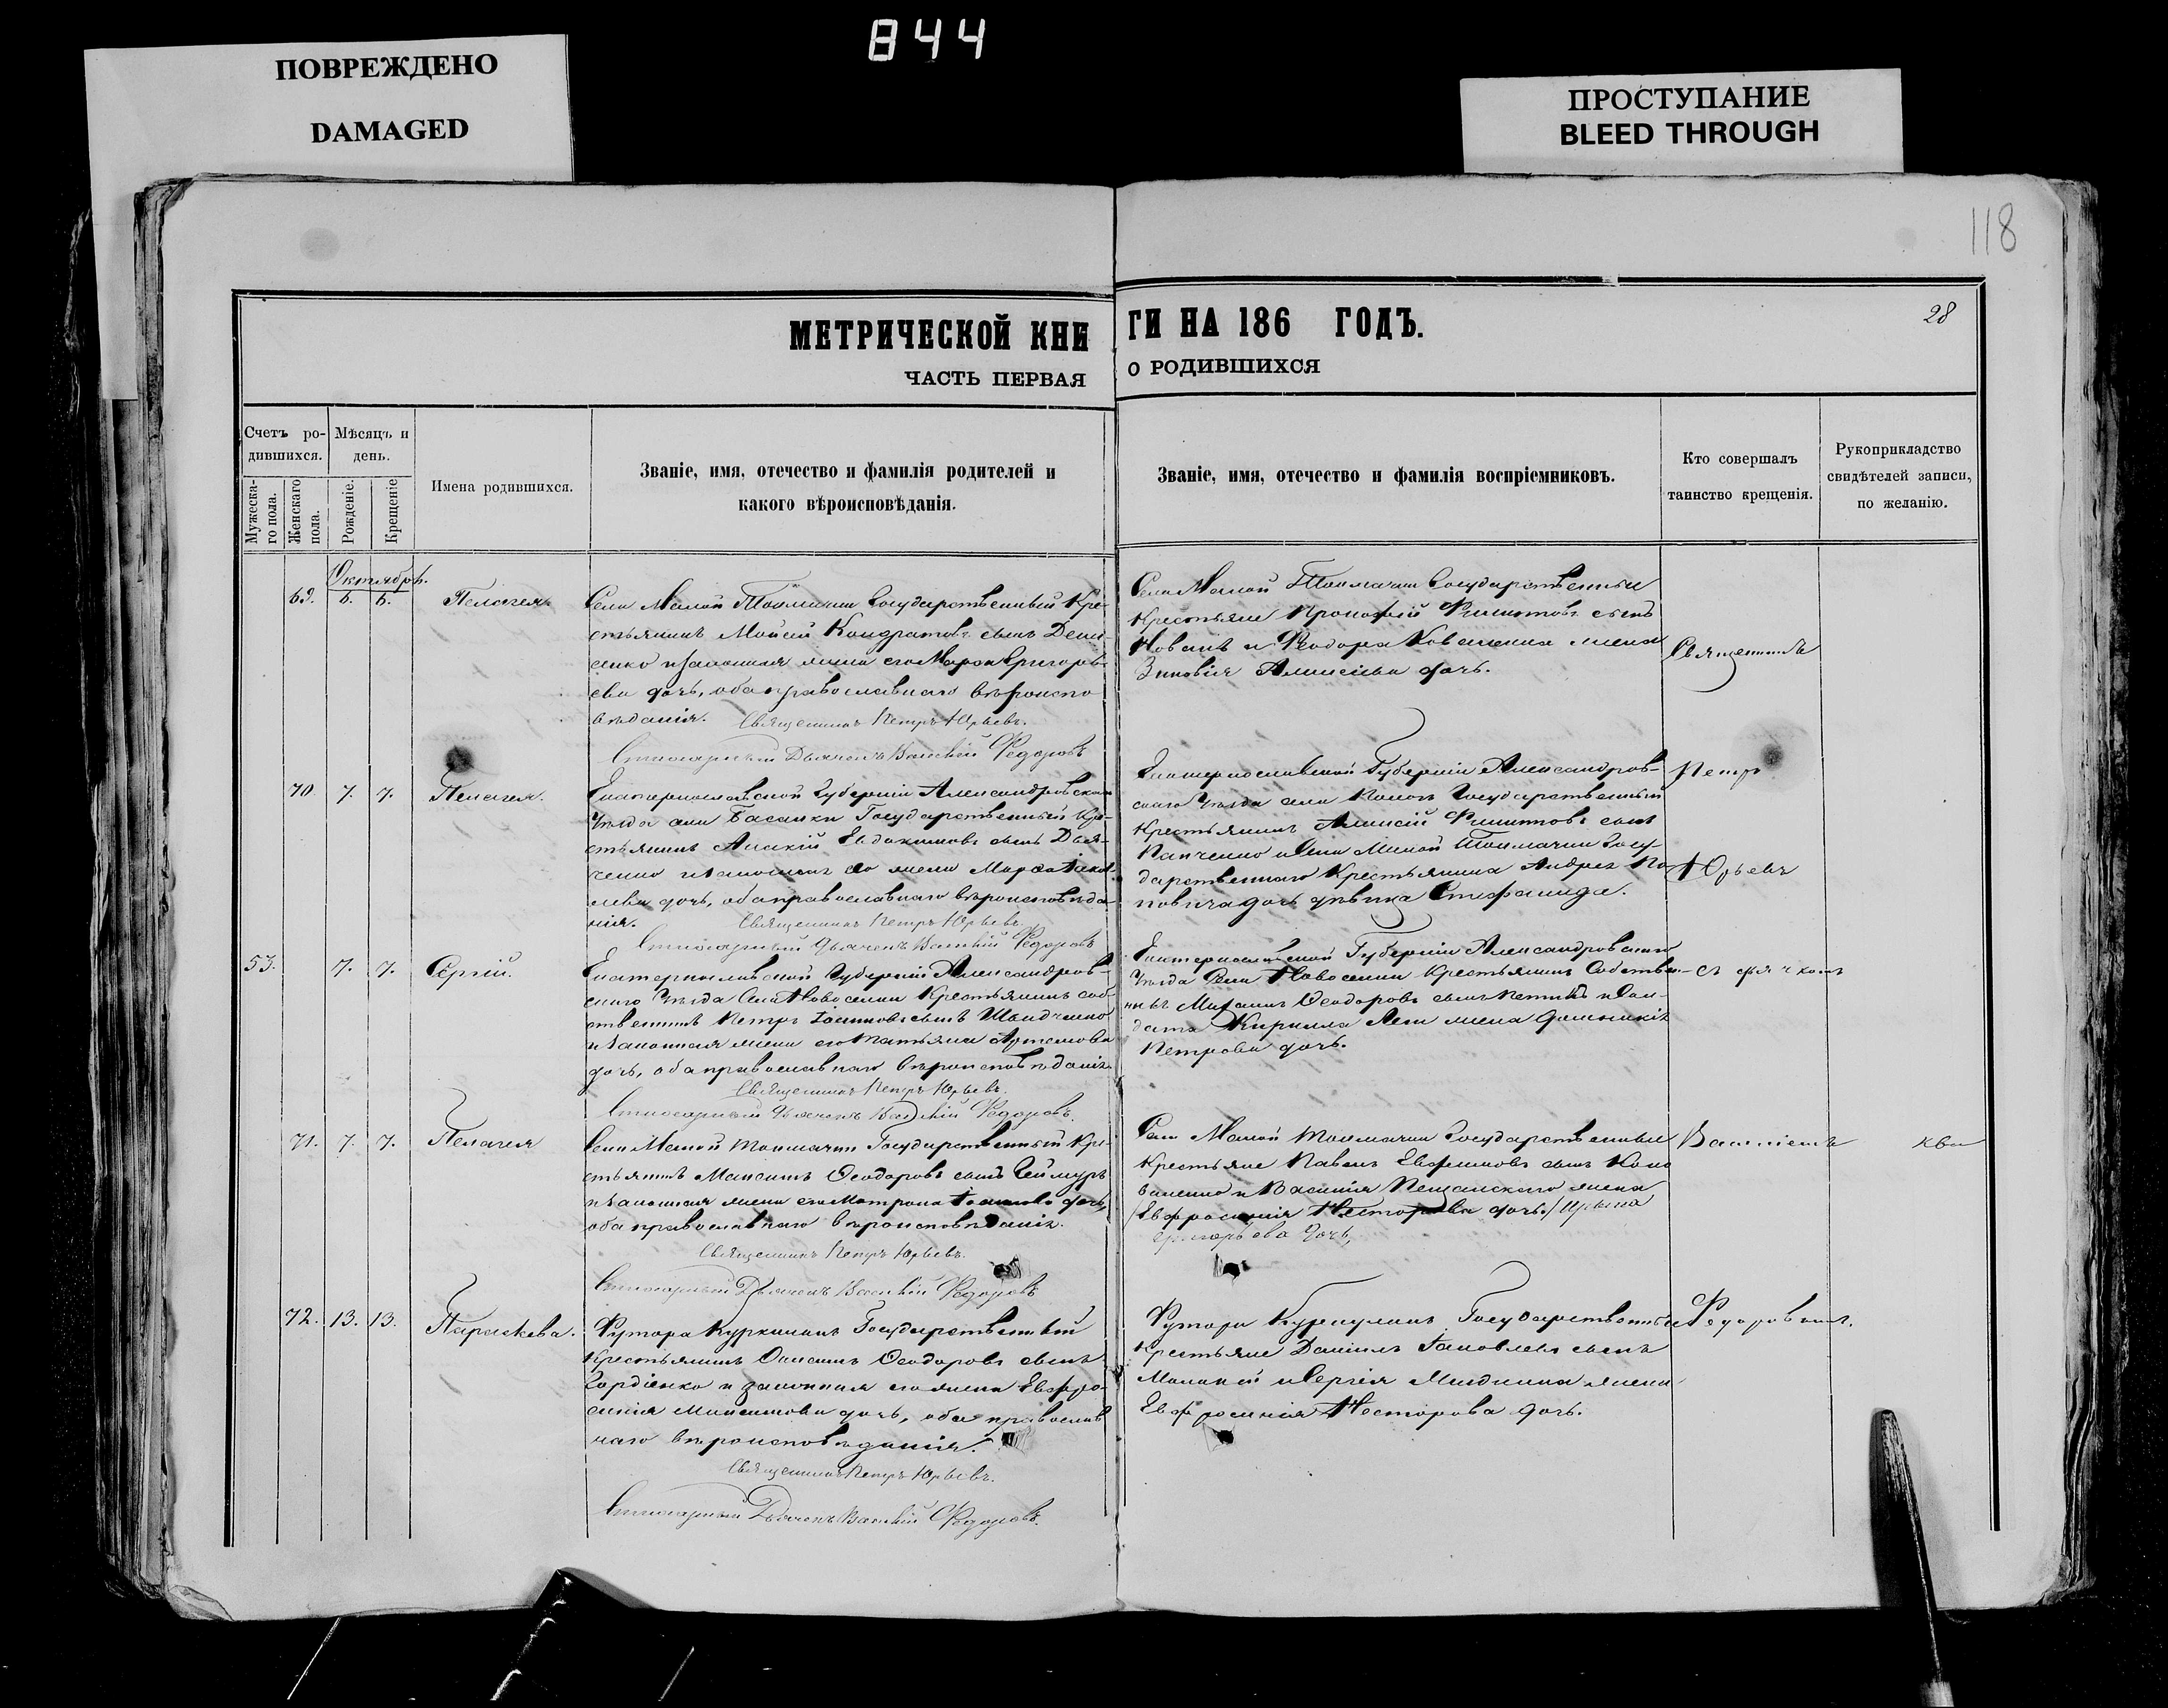 844
ПОВРЕЖДЕНО
DAMAGED
ПРОСТУПАНИЕ
BLEED THROUGH
118
28
МЕТРИЧЕСКОЙ КНИ
ГИ НА 186 ГОДЪ.
ЧАСТЬ ПЕРВАЯ
О РОДИВШИХСЯ
Счетъ ро-
дившихся.
Мѣсяцъ и
день.
Мужеска-
го пола.
Женскаго
пола.
Рожденіе.
Крещеніе
Имена родившихся.
Званіе, имя, отечество и фамилія родителей и
какого вѣроисповѣданія.
Званіе, имя, отечество и фамилія воспріемниковъ.
Кто совершалъ
таинство крещенія.
Рукоприкладство
свидѣтелей записи,
по желанію.
Октябрь.
69. 6. 6. Пелагея.
Села Малой Токмачки Государственный Кре-
стьянинъ Моисей Кондратовъ сынъ
и законная жена его Марфа Григорь-
ева дочь, оба православнаго вѣроиспо
вѣданія. Священникъ Петръ Юрьевъ.
Дьячекъ Василій Федоровъ
Села Малой Токмачки Государственные
Крестьяне Прокофій Филиповъ сынъ
и Феодора жена
Зиновія дочь.
Священникъ
70. 7. 7. Пелагея.
Екатеринославской Губерніи Александровскаго
Уѣзда села Басанки Государственный Кре-
стьянинъ Евдокимовъ сынъ
и законная его жена Марфа
дочь, оба православнаго вѣроисповѣда-
нія. Священникъ Петръ Юрьевъ.
Дьячекъ Василій Федоровъ
Екатеринославской Губерніи Александров-
скаго Уѣзда села Государственный
Крестьянинъ Алексій Филиповъ сынъ
Панченко и Села Малой Токмачки Госу-
дарственнаго Крестьянина Андрея По-
повича дочь дѣвица Стефанида.
Петр
Юрьевъ
53. 7. 7. Сергій.
Екатеринославской Губерніи Александров-
скаго Уѣзда Села Новоселки Крестьянинъ соб-
ственникъ Петръ сынъ
и законная жена его Татьяна Артемова
дочь, оба православнаго вѣроисповѣданія.
Священникъ Петръ Юрьевъ.
Дьячекъ Василій Федоровъ.
Екатеринославской Губерніи Александровскаго
Уѣзда Села Новоселки Крестьянинъ Собствен-
никъ Михаилъ Феодоровъ сынъ и Сол-
дата Кирилла жена Домникія
Петрова дочь.
съ дьячкомъ
71. 7. 7. Пелагея
Села Малой Токмачки Государственный Кре-
стьянинъ Максимъ Феодоровъ сынъ
и законная жена его Матрона дочь,
оба православнаго вѣроисповѣданія.
Священникъ Петръ Юрьевъ.
Дьячекъ Василій Федоровъ
Села Малой Токмачки Государственные
Крестьяне Павелъ Евфимовъ сынъ Коно
валенко и Василія жена
Евфросинія Несторова дочь./
Григорьева дочь,
Василіемъ
72. 13. 13. Параскева.
Футора Государственный
Крестьянинъ Феодоровъ сынъ
Гордіенко и законная его жена Евфро-
синія Максимова дочь, оба православ
наго вѣроисповѣданія.
Священникъ Петръ Юрьевъ.
Дьячекъ Василій Федоровъ.
Футора Государственные
Крестьяне Даніилъ Яковлевъ сынъ
и Сергія жена
Евфросинія Несторова дочь.
Федоровымъ.